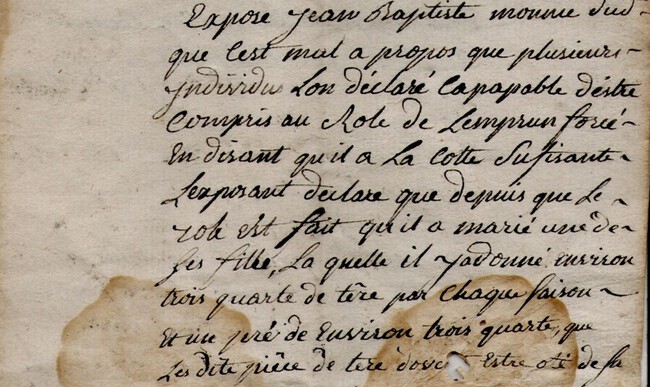 Expose Jean Baptiste moume dud
que Cest mal a propos que plusieurs
jndividus Lon déclaré Capapable déstre
Compris au Role de Lemprun forcé
En disant qu'il a La Cotte Sufisante
Lexposant declare que depuis que Le
role Est fait qu'il a marié une de
ses fille, La quelle il jadonné Environ
trois quarte de tére par Chaque saison
Et un pré de Environ trois quarte, que
Les dite piéce de tére doivent Estre oté de sa